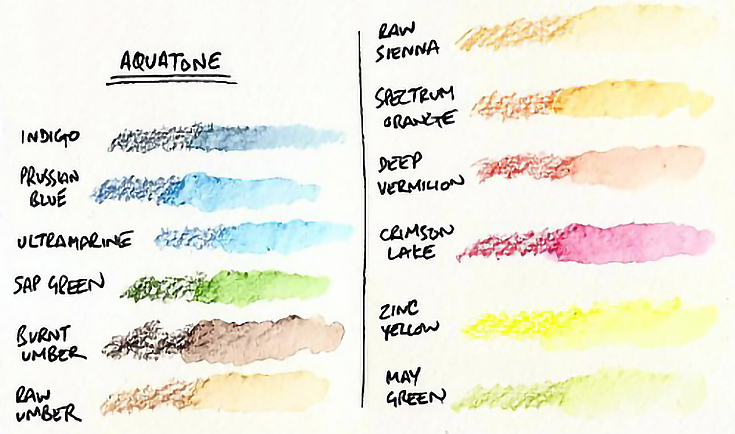 AQUATONE
INDIGO
PRUSSIAN
BLUE
ULTRAMARINE
SAP GREEN
BURNT
UMBER
RAW
UMBER
RAW
SIENNA
SPECTRUM
ORANGE
DEEP
VERMILION
CRIMSON
LAKE
ZINC
YELLOW
MAY
GREEN